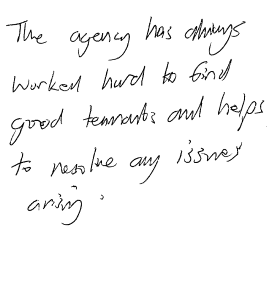 The agency has always
worked hard to find
good tennants and helps
to resolve any issues
arising.